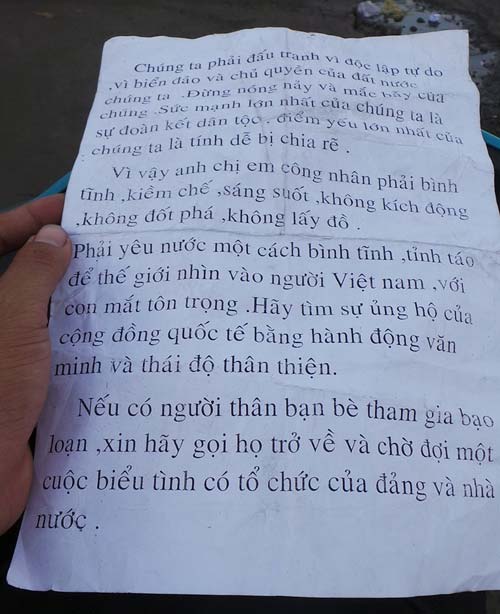 Chúng ta phải đấu tranh vì độc lập tự do
,vì biển đảo và chủ quyền của đất nước
chúng ta .Đừng nóng nảy và mắc bẫy của
chúng .Sức mạnh lớn nhất của chúng ta là
sự đoàn kết dân tộc . điểm yếu lớn nhất của
chúng ta là tính dễ bị chia rẽ .
Vì vậy anh chị em công nhân phải bình
tĩnh ,kiềm chế ,sáng suốt ,không kích động
,không đốt phá ,không lấy đồ .
Phải yêu nước một cách bình tĩnh ,tỉnh táo
để thế giới nhìn vào người Việt nam ,với
con mắt tôn trọng .Hãy tìm sự ủng hộ của
cộng đồng quốc tế bằng hành động văn
minh và thái độ thân thiện.
Nếu có người thân bạn bè tham gia bạo
loạn ,xin hãy gọi họ trở về và chờ đợi một
cuộc biểu tình có tổ chức của đảng và nhà
nước .